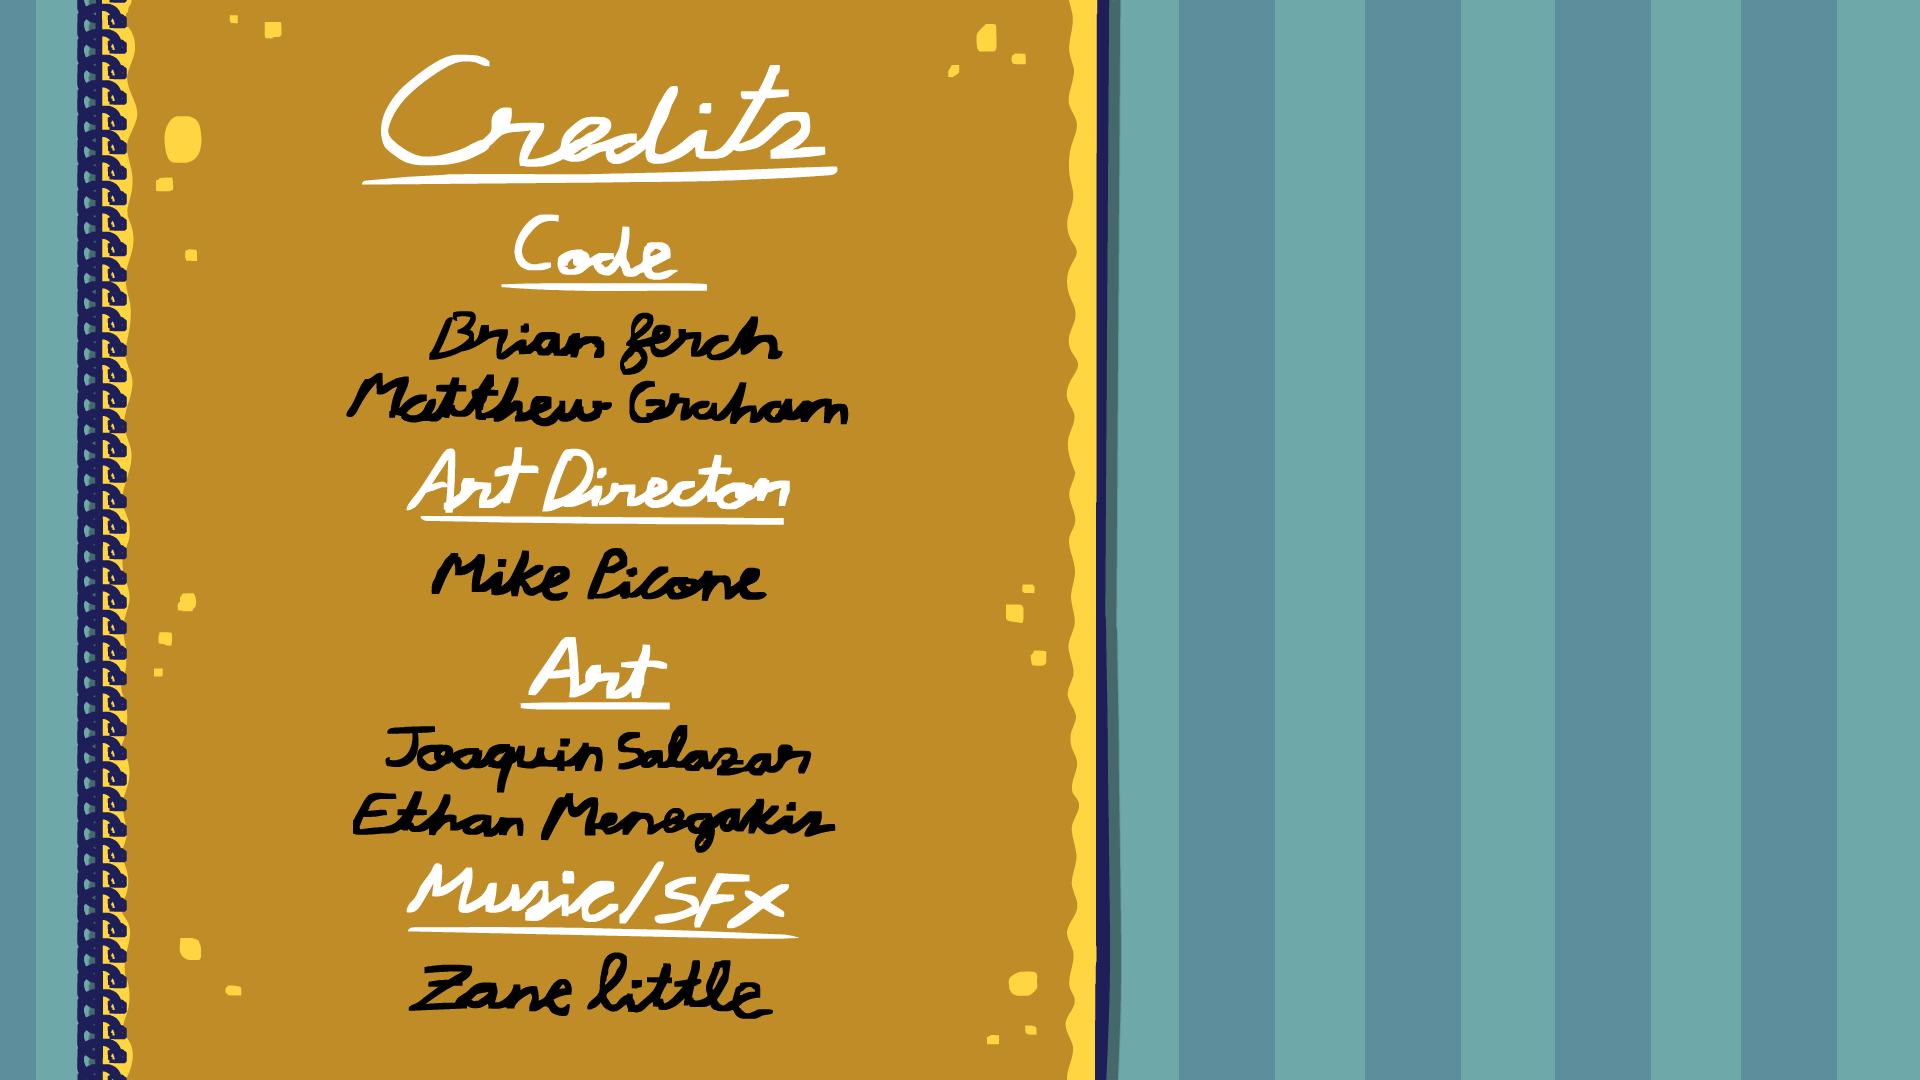 Credits
Code
Brian ferch
Matthew Graham
Art Director
Mike Picone
Art
Joaquin Salazar
Ethan Menegakis
Music/SFX
Zane little